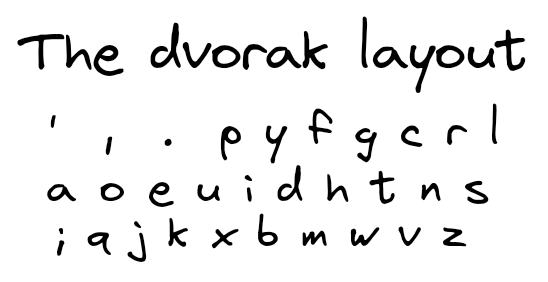 The dvorak layout
' , . p y f g c r l
a o e u i d h t n s
; q j k x b m w v z